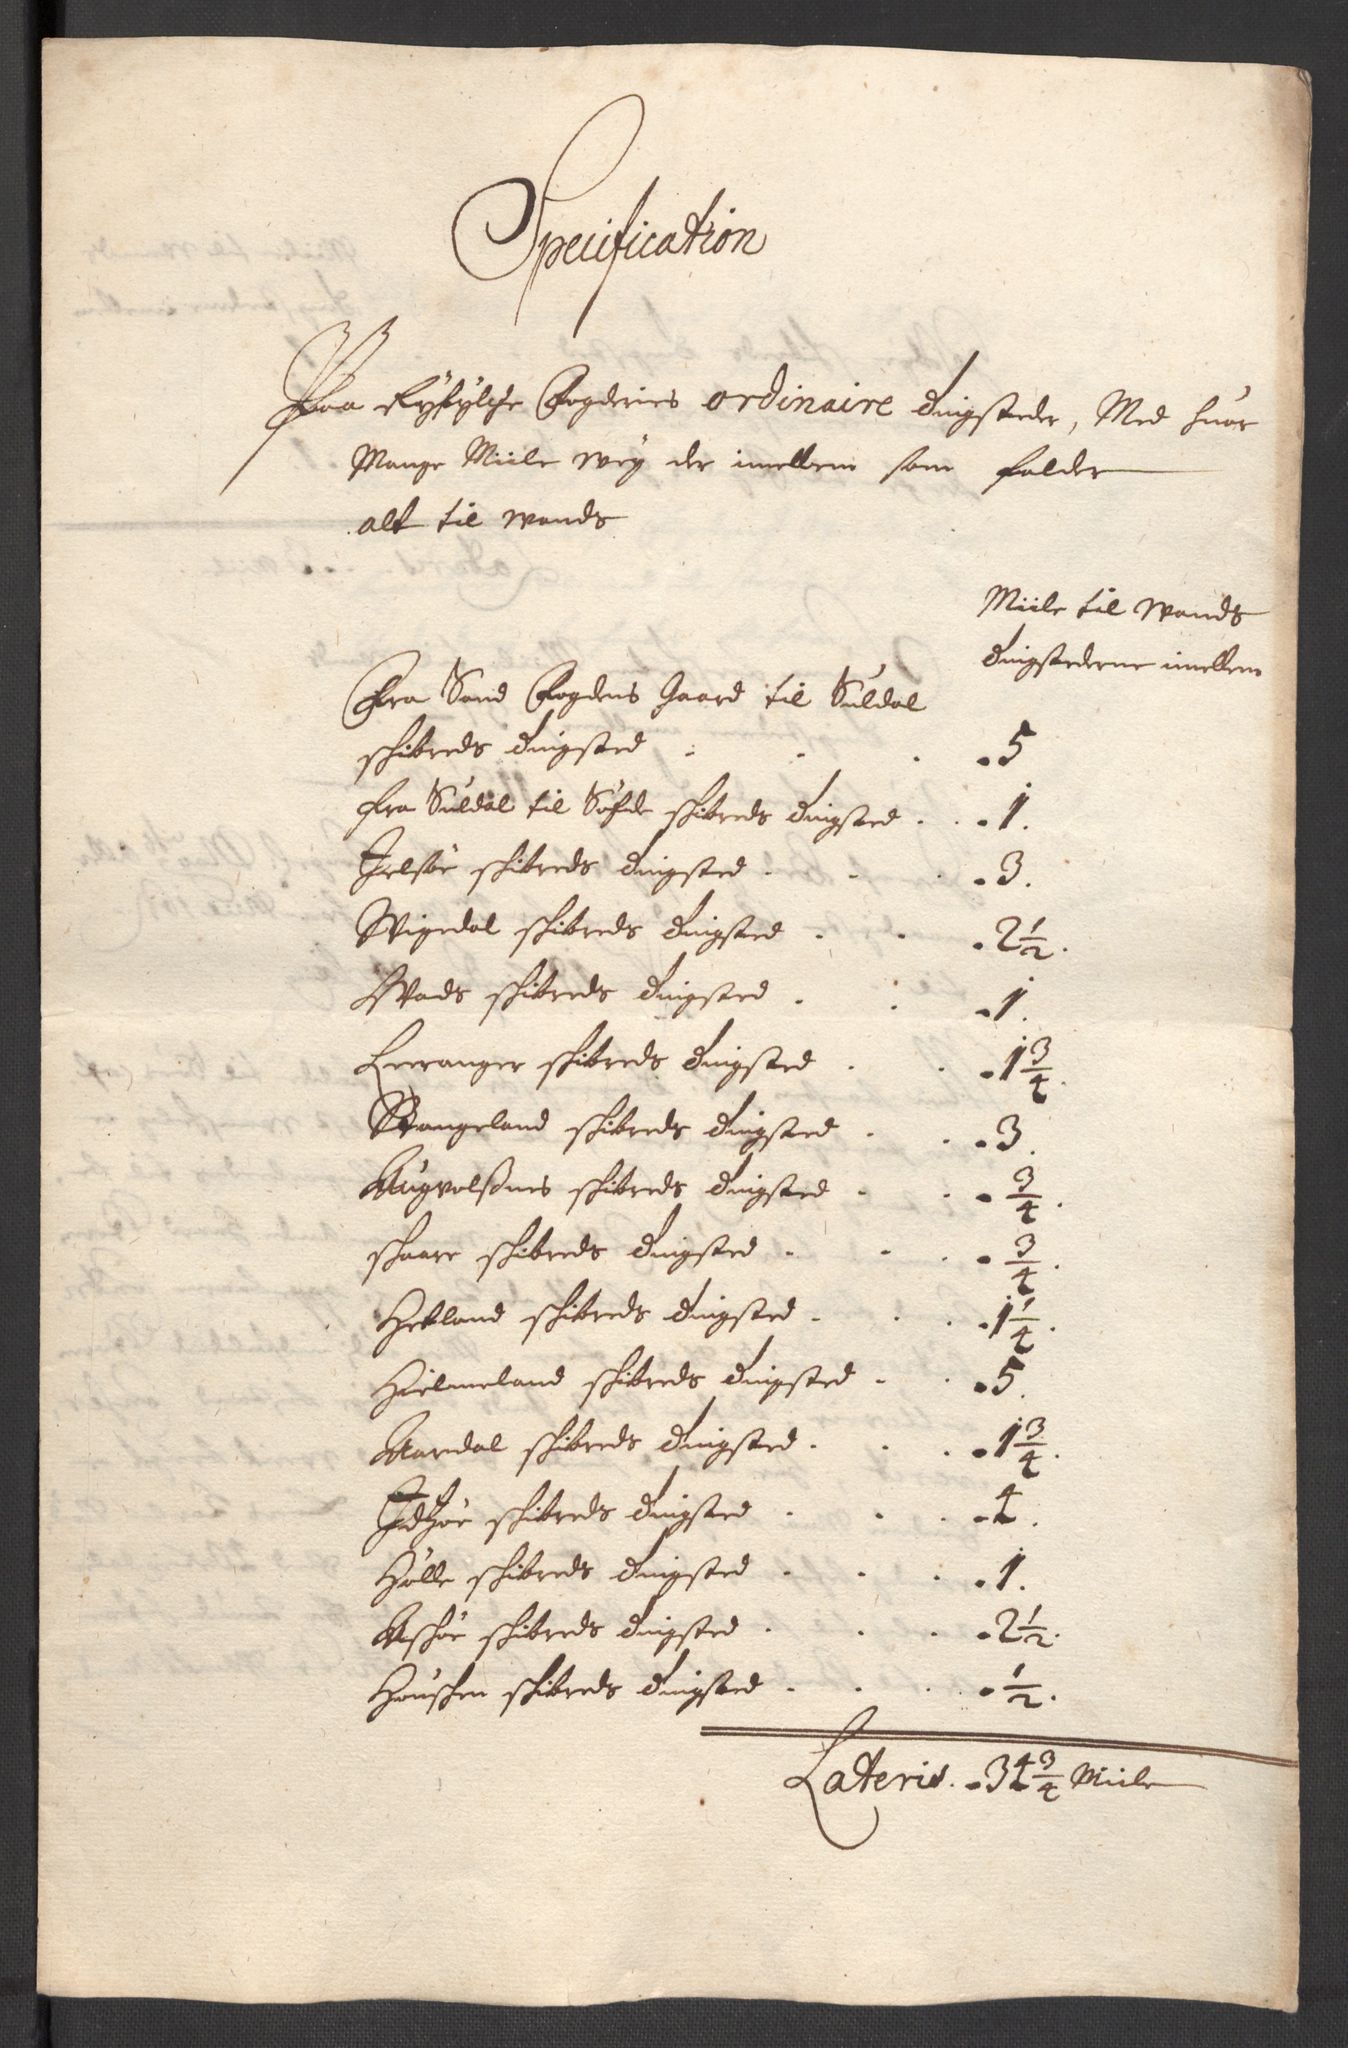 Specification
Paa Ryfylche Fogderies ordinaire dingsteder, Med huor
Mange Miile wey der imellem som falder
alt til wands
Miile til wands
dingstederne imellem
Fra Sand Fogdens Gaard til Suldal
schibreds dingsted . . . . 5
fra Suldal til Søfde schibreds dingsted . . . 1.
Jelsøe schibreds dingsted . . . . 3.
Wigedal schibreds dingsted . . . 2 1/2.
Wads schibreds dingsted . . . 1.
Leeranger schibreds dingsted . . . 1 3/4.
Stangeland schibreds dingsted . . . 3.
Augvolsnes schibreds dingsted . . . 3/4.
schaare schibreds dingsted . . . . 3/4.
Hetland schibreds dingsted . . . . 1 1/4.
Hielmeland schibreds dingsted . . . 5.
Aardal schibreds dingsted . . . . 1 3/4.
Idsøe schibreds dingsted . . . . 4.
Hølle schibreds dingsted . . . . 1.
Aschøe schibreds dingsted . . . . 2 1/2.
Hauschen schibreds dingsted . . . . 1/2.
Lateris. . 34 3/4 Miile